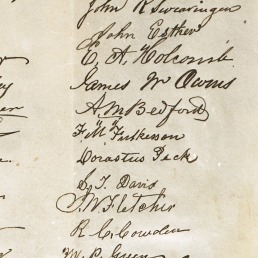 John R Swearingen
John Esther
E. A. Holcomb
James M Owens
A. M Bedford
F. M. Fulkerson
Dorastus Peck
S. T. Davis
S. W Fletcher
R. C. Cowden
W. P. Green